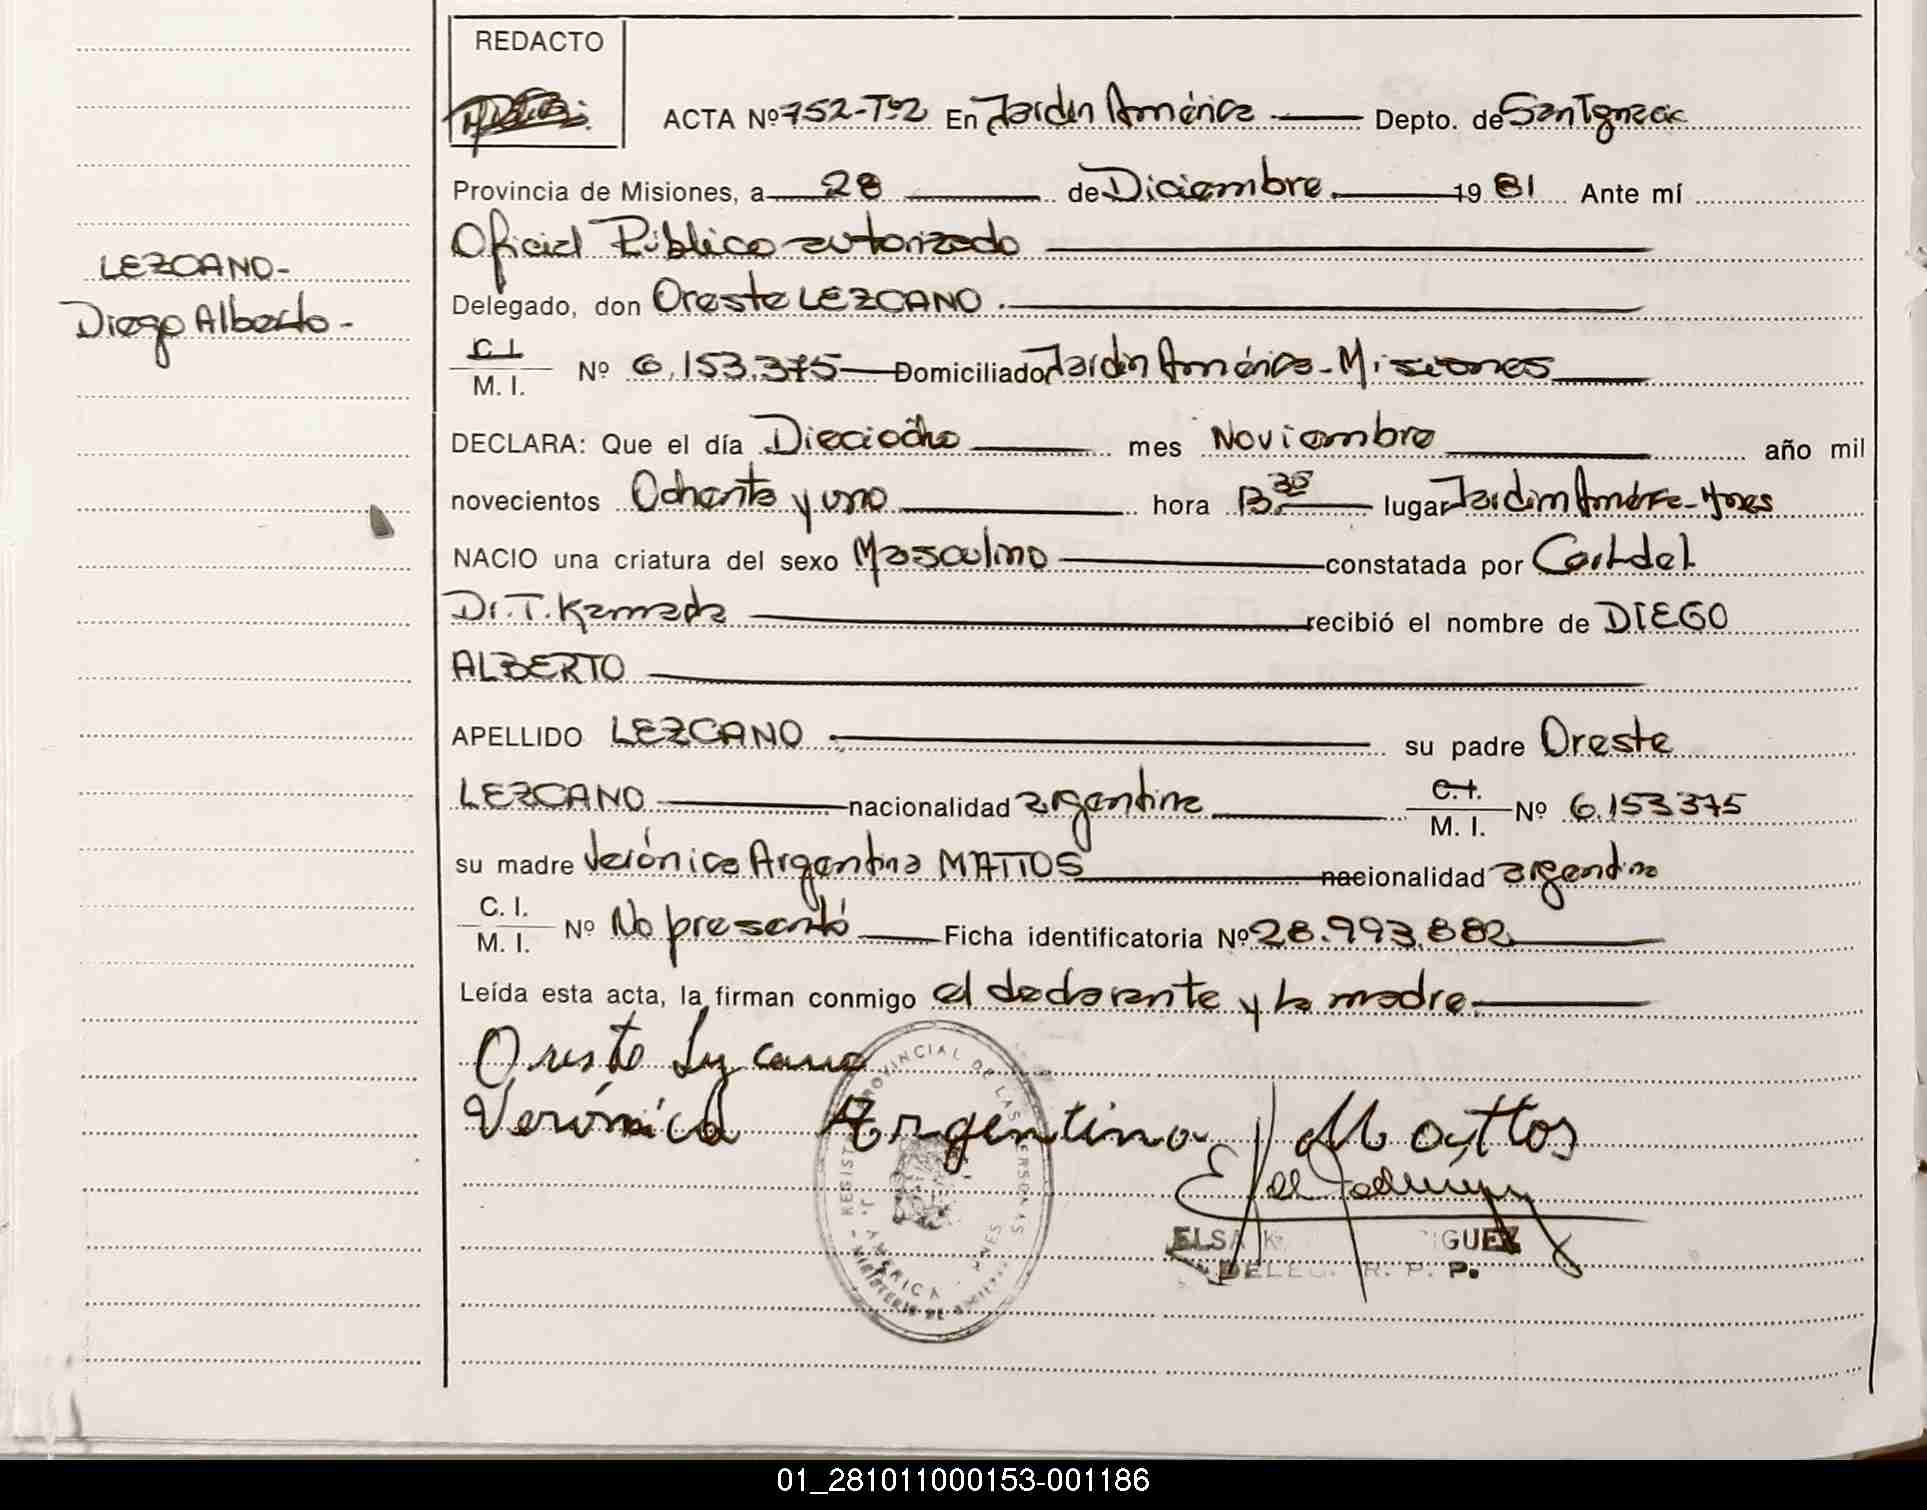 REDACTO
ACTA Nº 752-Tº2 En Jardín América Depto. de San Ignacio
Provincia de Misiones, a 28 de Diciembre 1981 Ante mí
Oficial Público autorizado
LEZCANO-
Delegado, don Oreste LEZCANO.
Diego Alberto-
C.I.
M. I. Nº 6.153.375 Domiciliado Jardín América-Misiones
DECLARA: Que el día Dieciocho mes Noviembre año mil
novecientos Ochenta y uno hora 13,30 lugar Jardím América-Mnes
NACIO una criatura del sexo Masculino constatada por Cert.del
Dr.T.Kamada recibió el nombre de DIEGO
ALBERTO
APELLIDO LEZCANO su padre Oreste
LEZCANO nacionalidad argentina C.I. M. I. Nº 6.153.375
su madre Verónica Argentina MATTOS nacionalidad argentina
C. I.
M. I. Nº No presentó Ficha identificatoria Nº 28.993.882
Leída esta acta, la firman conmigo el declarante y la madre.
Oreste Lezcano
Verónica Argentina Mattos
REGISTRO PROVINCIAL DE LAS PERSONAS
J. AMERICA
ELSA K. IGUEZ
DELEG. R. P. P.
01_281011000153-001186